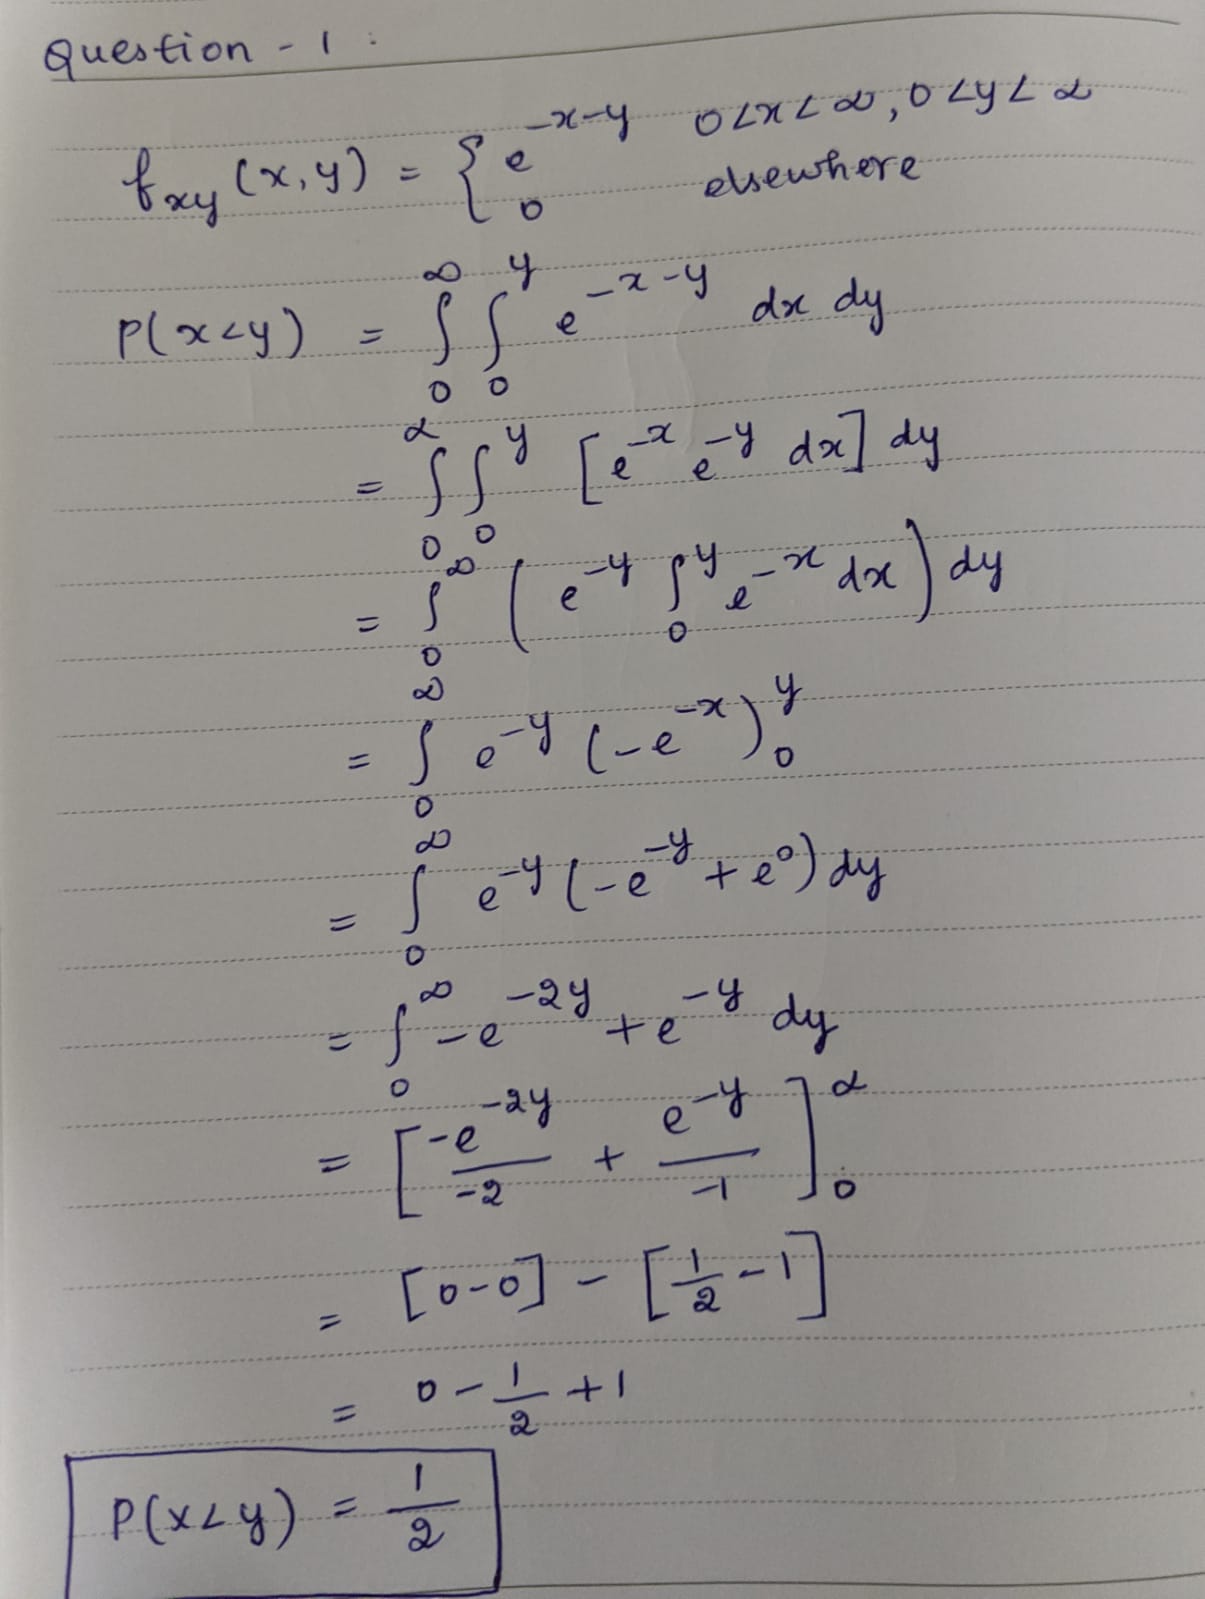 Question - 1 :
fxy (x,y) = { e^{-x-y} 0<x<∞, 0<y<∞
0 elsewhere
P(x<y) = ∫_0^∞ ∫_0^y e^{-x-y} dx dy
= ∫_0^∞ ∫_0^y [e^{-x} e^{-y} dx] dy
= ∫_0^∞ ( e^{-y} ∫_0^y e^{-x} dx ) dy
= ∫_0^∞ e^{-y} (-e^{-x})_0^y
= ∫_0^∞ e^{-y} (-e^{-y} + e^0) dy
= ∫_0^∞ -e^{-2y} + e^{-y} dy
= [ -e^{-2y}/-2 + e^{-y}/-1 ]_0^∞
= [0-0] - [1/2 - 1]
= 0 - 1/2 + 1
P(x<y) = 1/2